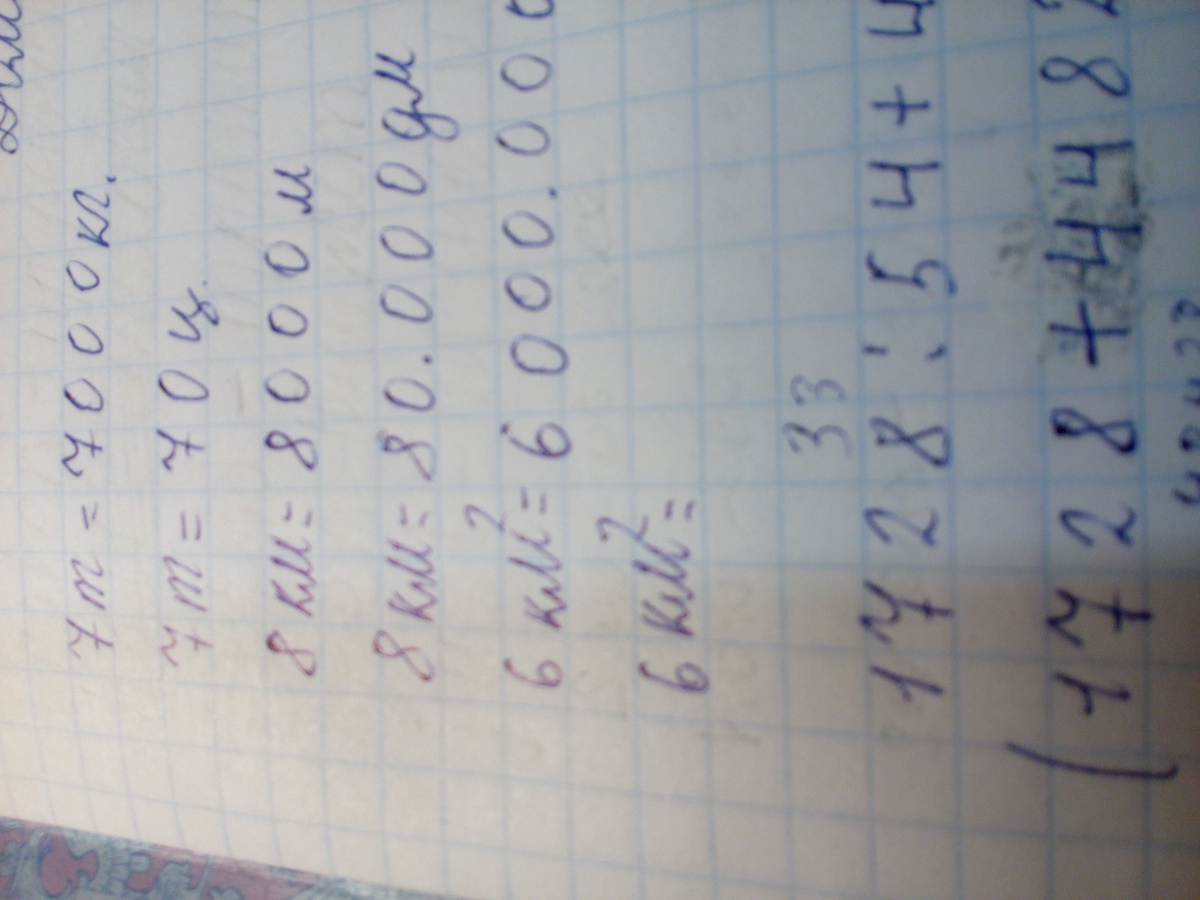 7т = 7000 кг.
7т = 70 ц.
8 км = 8000 м
8 км = 80.000 дм
6 км² = 6 000.000
6 км² =
33
1728 : 54 + 4
(1728 + 448